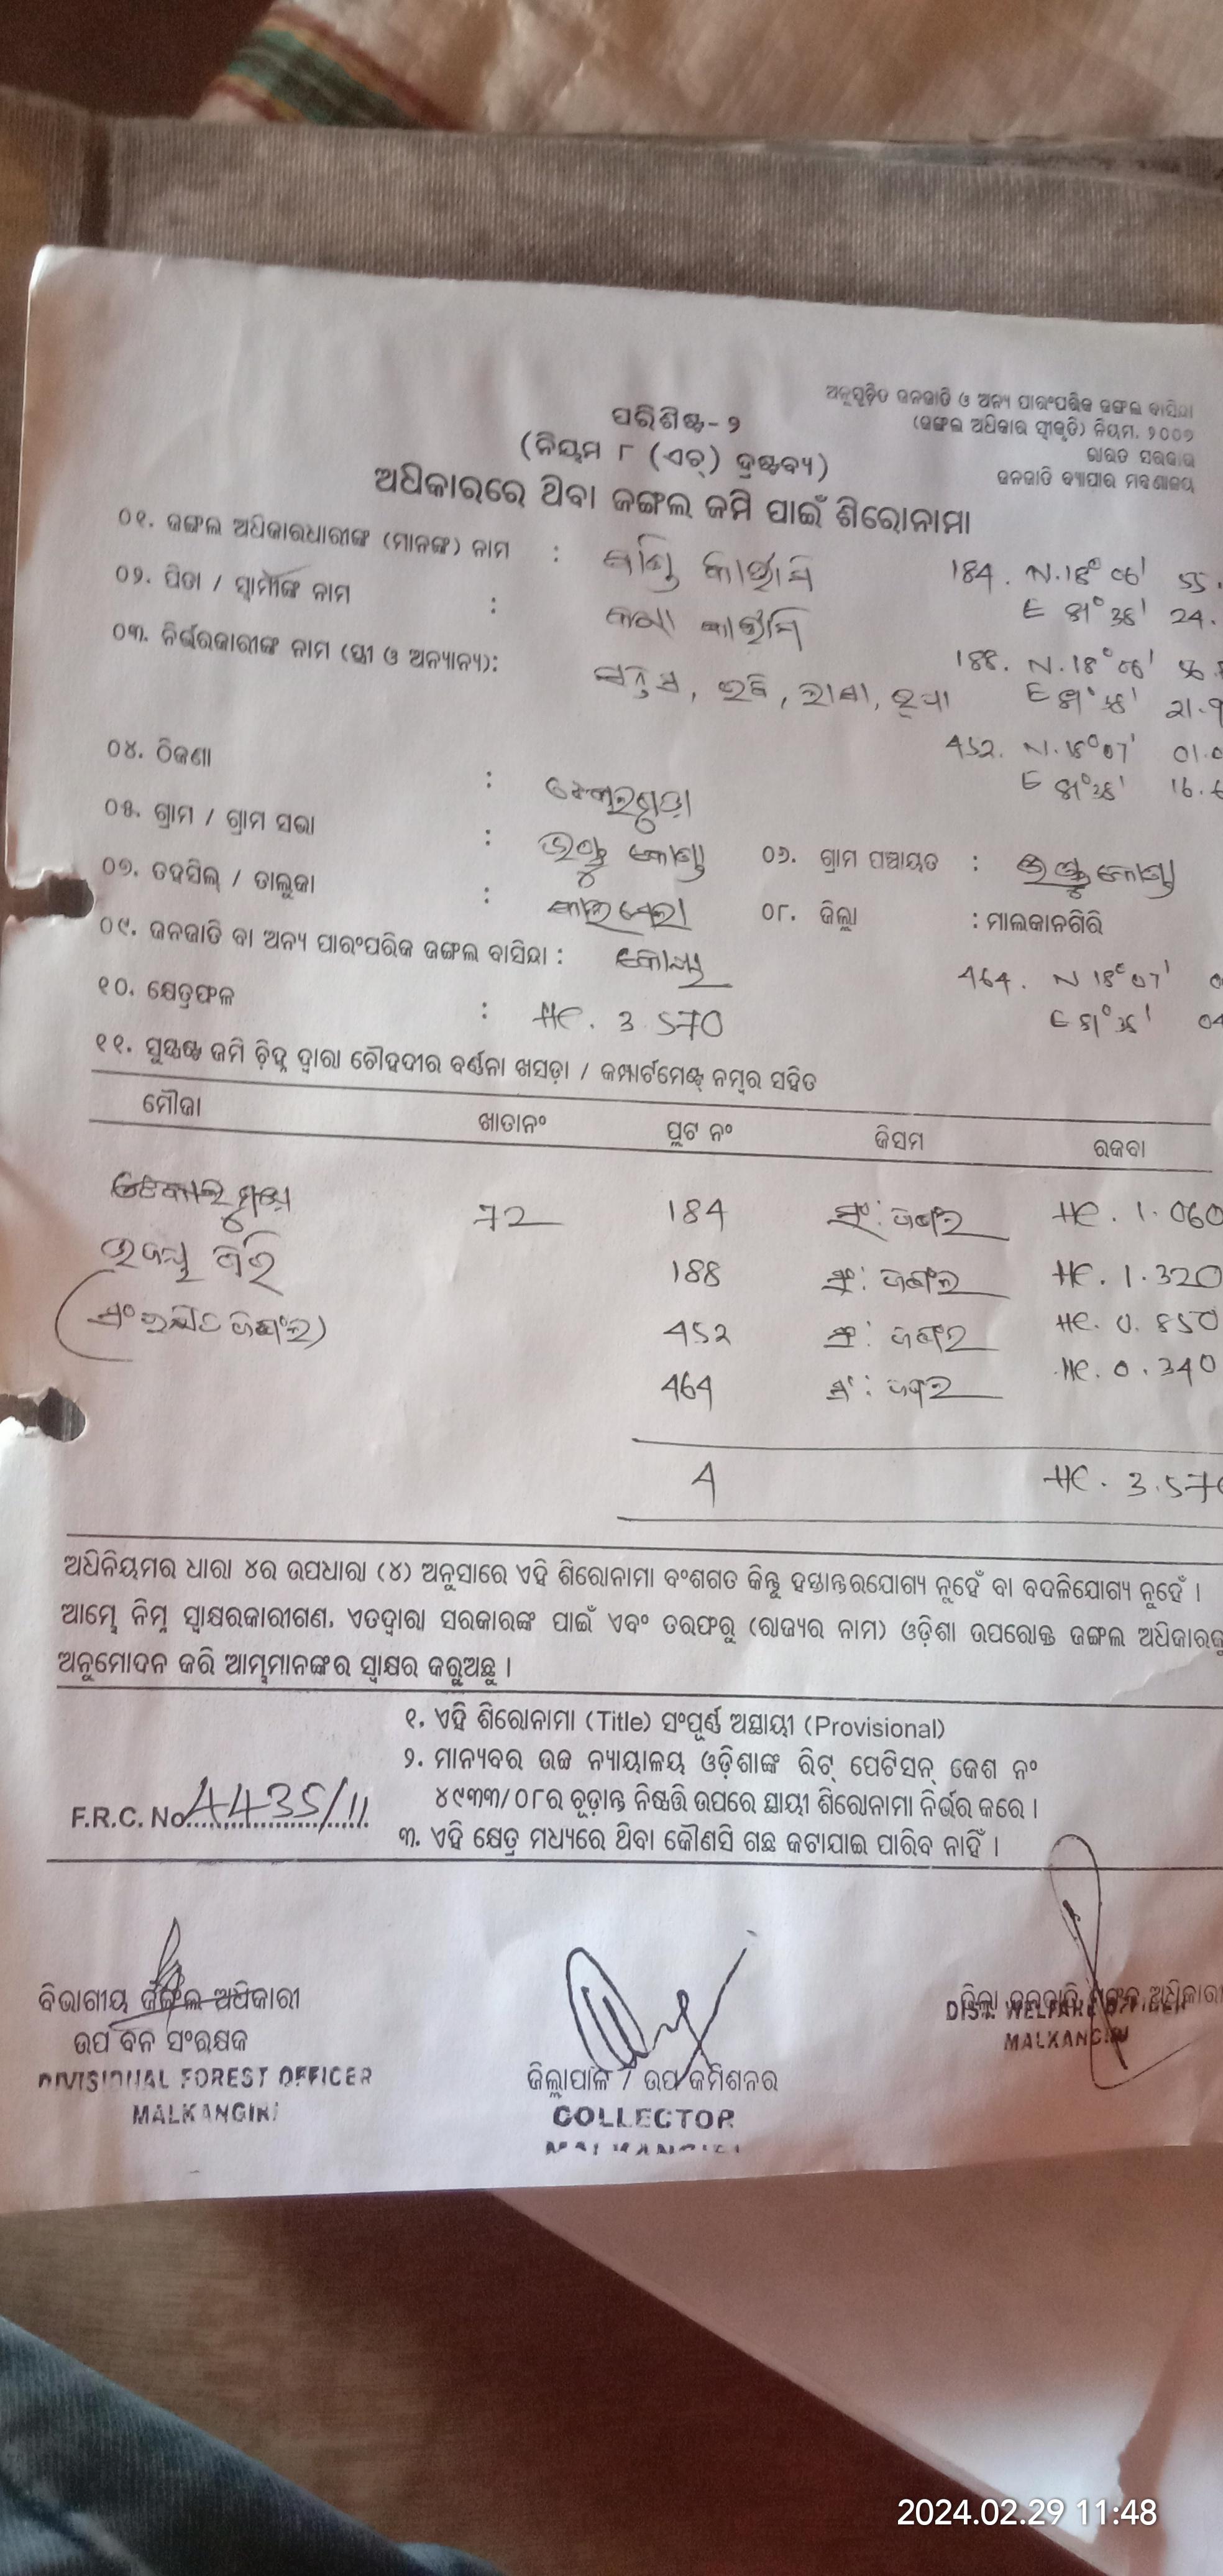 ଅନୁସୂଚିତ ଜନଜାତି ଓ ଅନ୍ୟ ପାରଂପରିକ ଜଙ୍ଗଲ ବାସିନ୍ଦା
(ଜଙ୍ଗଲ ଅଧିକାର ସ୍ୱୀକୃତି) ନିୟମ, ୨୦୦୭
ଭାରତ ସରକାର
ଜନଜାତି ବ୍ୟାପାର ମନ୍ତ୍ରଣାଳୟ
ପରିଶିଷ୍ଟ - ୨
(ନିୟମ ୮ (ଏଚ୍) ଦ୍ରଷ୍ଟବ୍ୟ)
ଅଧିକାରରେ ଥିବା ଜଙ୍ଗଲ ଜମି ପାଇଁ ଶିରୋନାମା
୦୧. ଜଙ୍ଗଲ ଅଧିକାରଧାରୀଙ୍କ (ମାନଙ୍କ) ନାମ :
184. N.18° 06' 55.
୦୨. ପିତା / ସ୍ୱାମୀଙ୍କ ନାମ :
E 81° 38' 24.
୦୩. ନିର୍ଭରକାରୀଙ୍କ ନାମ (ସ୍ତ୍ରୀ ଓ ଅନ୍ୟାନ୍ୟ):
188. N.18° 06' 56.
E 81° 38' 21.9
452. N.18° 07' 01.0
E 81° 38' 16.
୦୪. ଠିକଣା :
୦୫. ଗ୍ରାମ / ଗ୍ରାମ ସଭା : ୦୬. ଗ୍ରାମ ପଞ୍ଚାୟତ :
୦୭. ତହସିଲ୍ / ତାଲୁକା : ୦୮. ଜିଲ୍ଲା : ମାଲକାନଗିରି
୦୯. ଜନଜାତି ବା ଅନ୍ୟ ପାରଂପରିକ ଜଙ୍ଗଲ ବାସିନ୍ଦା : କୋୟା
464. N 18° 07'
୧୦. କ୍ଷେତ୍ରଫଳ : HC. 3.570
E 81° 38' 04
୧୧. ସୁସ୍ପଷ୍ଟ ଜମି ଚିହ୍ନ ଦ୍ୱାରା ଚୌହଦୀର ବର୍ଣ୍ଣନା ଖସଡ଼ା / କମ୍ପାର୍ଟମେଣ୍ଟ୍ ନମ୍ବର ସହିତ
ମୌଜା ଖାତାନଂ ପ୍ଲଟ ନଂ କିସମ ରକବା
72 184 ସଂ: ଜଙ୍ଗଲ HC. 1.060
188 ସଂ: ଜଙ୍ଗଲ HC. 1.320
452 ସଂ: ଜଙ୍ଗଲ HC. 0.850
464 ସଂ: ଜଙ୍ଗଲ HC. 0.340
4 HC. 3.570
ଅଧିନିୟମର ଧାରା ୪ର ଉପଧାରା (୪) ଅନୁସାରେ ଏହି ଶିରୋନାମା ବଂଶଗତ କିନ୍ତୁ ହସ୍ତାନ୍ତରଯୋଗ୍ୟ ନୁହେଁ ବା ବଦଳିଯୋଗ୍ୟ ନୁହେଁ ।
ଆମ୍ଭେ ନିମ୍ନ ସ୍ୱାକ୍ଷରକାରୀଗଣ, ଏତଦ୍ୱାରା ସରକାରଙ୍କ ପାଇଁ ଏବଂ ତରଫରୁ (ରାଜ୍ୟର ନାମ) ଓଡ଼ିଶା ଉପରୋକ୍ତ ଜଙ୍ଗଲ ଅଧିକାରକୁ
ଅନୁମୋଦନ କରି ଆମ୍ଭମାନଙ୍କର ସ୍ୱାକ୍ଷର କରୁଅଛୁ ।
୧. ଏହି ଶିରୋନାମା (Title) ସଂପୂର୍ଣ୍ଣ ଅସ୍ଥାୟୀ (Provisional)
୨. ମାନ୍ୟବର ଉଚ୍ଚ ନ୍ୟାୟାଳୟ ଓଡ଼ିଶାଙ୍କ ରିଟ୍ ପେଟିସନ୍ କେଶ ନଂ
୪୯୩୩/୦୮ର ଚୂଡ଼ାନ୍ତ ନିଷ୍ପତ୍ତି ଉପରେ ସ୍ଥାୟୀ ଶିରୋନାମା ନିର୍ଭର କରେ ।
F.R.C. No. 4435/11
୩. ଏହି କ୍ଷେତ୍ର ମଧ୍ୟରେ ଥିବା କୌଣସି ଗଛ କଟାଯାଇ ପାରିବ ନାହିଁ ।
ବିଭାଗୀୟ ଜଙ୍ଗଲ ଅଧିକାରୀ
ଉପ ବନ ସଂରକ୍ଷକ
DIVISIONAL FOREST OFFICER
MALKANGIRI
ଜିଲ୍ଲାପାଳ / ଉପ କମିଶନର
COLLECTOR
MALKANGIRI
ଜିଲ୍ଲା ଜନଜାତି ମଙ୍ଗଳ ଅଧିକାରୀ
DIST. WELFARE OFFICER
MALKANGIRI
2024.02.29 11:48